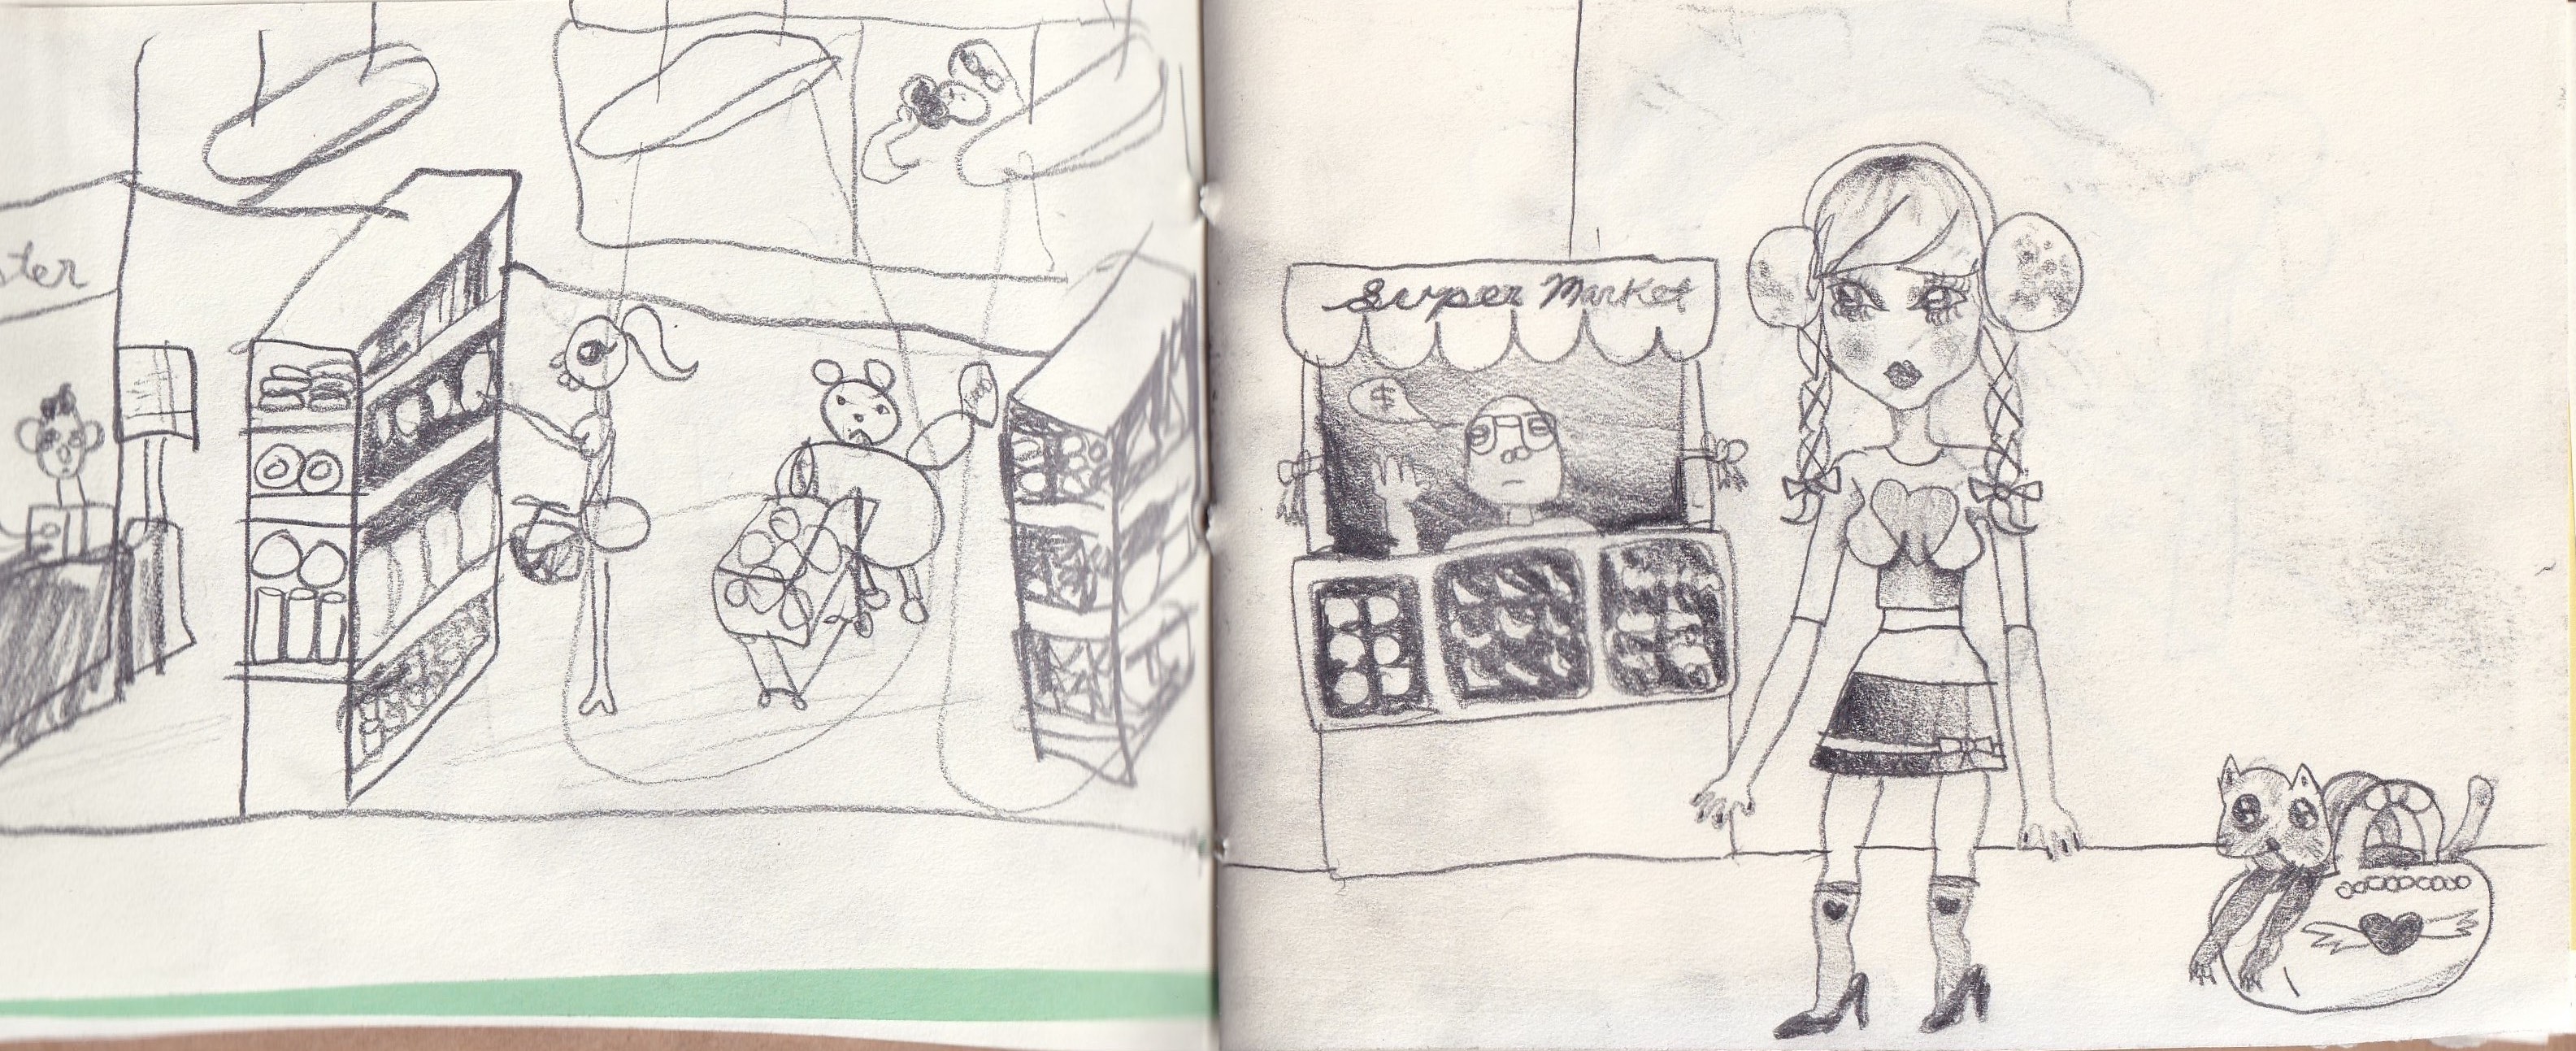 ster
Super Market
$